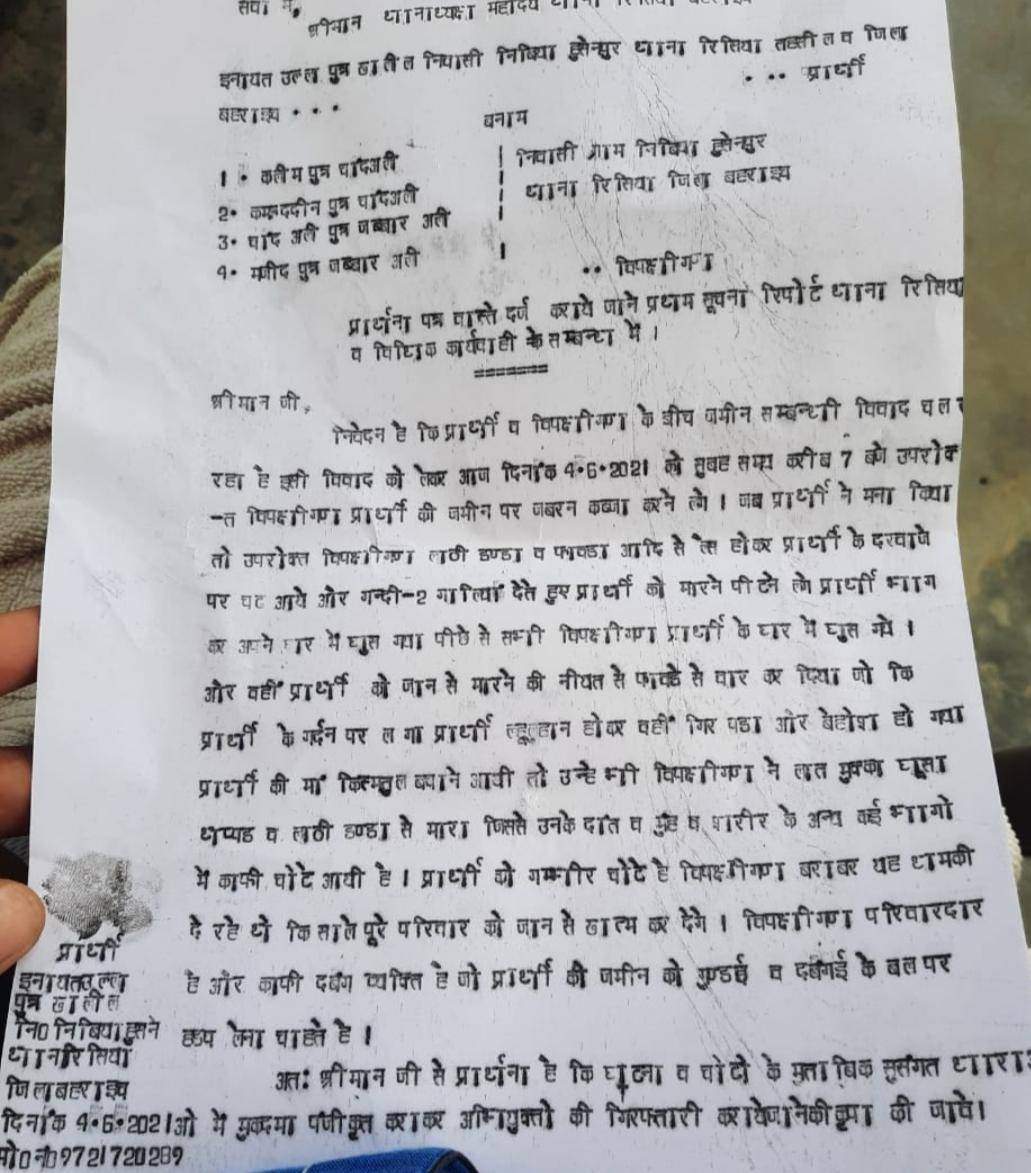 सेवा में,
श्रीमान थानाध्यक्ष महोदय थाना रिसिया बहराइच
इनायत उल्ला पुत्र खलील निवासी निबिया हुसेनपुर थाना रिसिया तहसील व जिला
बहराइच • • •
• •• प्रार्थी
बनाम
1• कलीम पुत्र चांदअली
2• कमरूददीन पुत्र चांदअली
3• चांद अली पुत्र जब्बार अली
4• मजीद पुत्र जब्बार अली
निवासी ग्राम निबिया हुसेनपुर
थाना रिसिया जिला बहराइच
•• विपक्षीगण
प्रार्थना पत्र वास्ते दर्ज कराये जाने प्रथम सूचना रिपोर्ट थाना रिसिया
व विधिक कार्यवाही के सम्बन्ध में ।
=======
श्रीमान जी,
निवेदन है कि प्रार्थी व विपक्षीगण के बीच जमीन सम्बन्धी विवाद चल र
रहा है इसी विवाद को लेकर आज दिनांक 4•6•2021 को सुबह समय करीब 7 बजे उपरोक
-त विपक्षीगण प्रार्थी की जमीन पर जबरन कब्जा करने लगे । जब प्रार्थी ने मना किया
तो उपरोक्त विपक्षीगण लाठी डण्डा व फावडा आदि से लैस होकर प्रार्थी के दरवाजे
पर चढ आये और गन्दी-2 गालियां देते हुए प्रार्थी को मारने पीटने लगे प्रार्थी भाग
कर अपने घर में घुस गया पीछे से सभी विपक्षीगण प्रार्थी के घर में घुस गये ।
और वहीं प्रार्थी को जान से मारने की नीयत से फावडे से वार कर दिया जो कि
प्रार्थी के गर्दन पर लगा प्रार्थी लहूलुहान होकर वहीं गिर पडा और बेहोश हो गया
प्रार्थी की मां किस्मतुल बचाने आयी तो उन्हे भी विपक्षीगण ने लात मुक्का घूसा
थप्पड व लाठी डण्डा से मारा जिससे उनके दांत व मुंह व शरीर के अन्य कई भागो
में काफी चोटे आयी है । प्रार्थी को गम्भीर चोटे है विपक्षीगण बराबर यह धमकी
दे रहे थे कि साले पूरे परिवार को जान से खत्म कर देंगे । विपक्षीगण परिवारदार
है और काफी दबंग व्यक्ति है जो प्रार्थी की जमीन को गुण्डई व दबंगई के बल पर
हडप लेना चाहते है ।
अतः श्रीमान जी से प्रार्थना है कि घटना व चोटो के मुताबिक सुसंगत धारा
ओ में मुकदमा पंजीकृत कराकर अभियुक्तो की गिरफ्तारी कराये जाने की कृपा की जावे।
प्रार्थी
इनायतउल्ला
पुत्र खलील
नि0 निबिया हुसेन
थाना रिसिया
जिला बहराइच
दिनांक 4•6•2021
मो0 नं0 9721720289